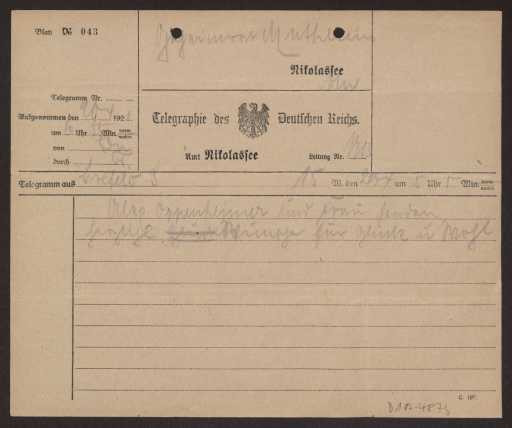 Blatt № 043
Geheimrat Muthesius
Nikolassee
Telegramm Nr.
Aufgenommen den 192
um Uhr Min.
von
durch
Telegraphie des Deutschen Reichs.
Amt Nikolassee
Leitung Nr.
Telegramm aus Krefeld 15 W. den um Uhr Min.
Oppenheimer und Frau senden
herzliche Wünsche für Glück u Wohl
C. 187.